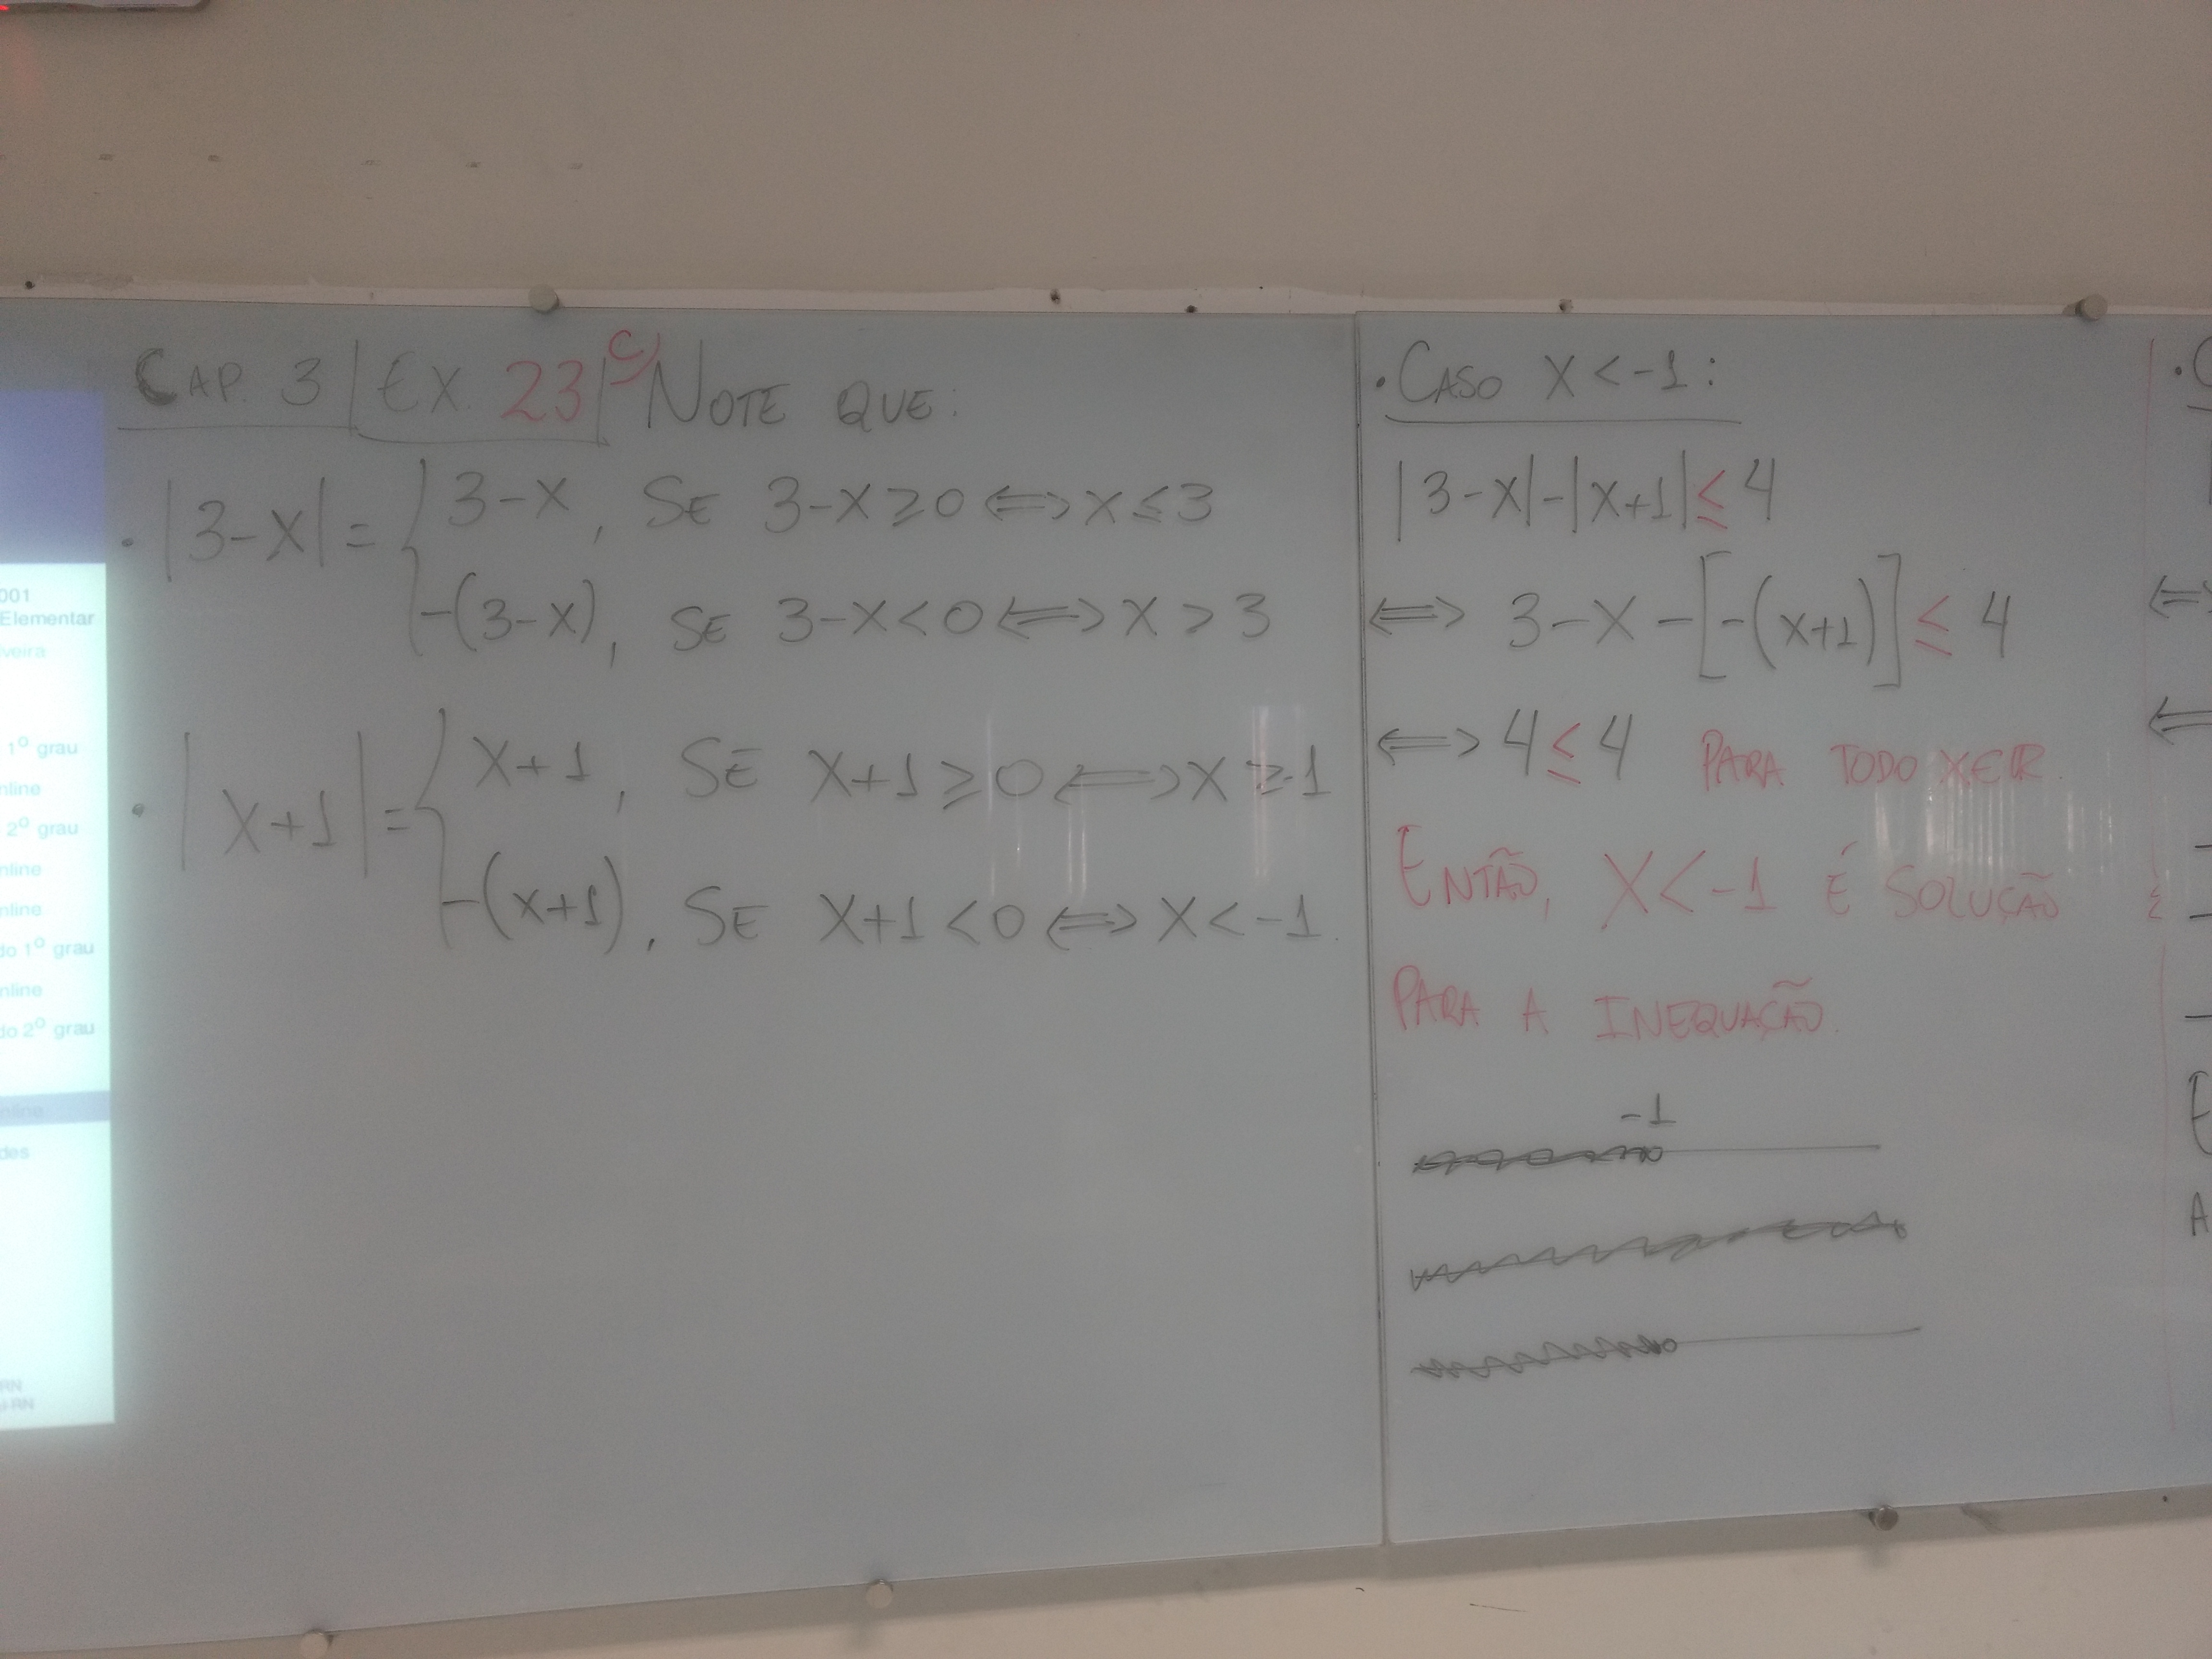 001
Elementar
veira
1º grau
nline
2º grau
nline
nline
do 1º grau
nline
do 2º grau
nline
des
RN
RN
CAP. 3 | EX. 23 | c) NOTE QUE:
• |3-x| = { 3-x, SE 3-x ≥ 0 ⟺ x ≤ 3
-(3-x), SE 3-x < 0 ⟺ x > 3
• |x+1| = { x+1, SE x+1 ≥ 0 ⟺ x ≥ -1
-(x+1), SE x+1 < 0 ⟺ x < -1.
• CASO x < -1:
|3-x| - |x+1| ≤ 4
⟺ 3-x-[-(x+1)] ≤ 4
⟺ 4 ≤ 4 PARA TODO x∈ℝ.
ENTÃO, x < -1 É SOLUÇÃO
PARA A INEQUAÇÃO.
-1